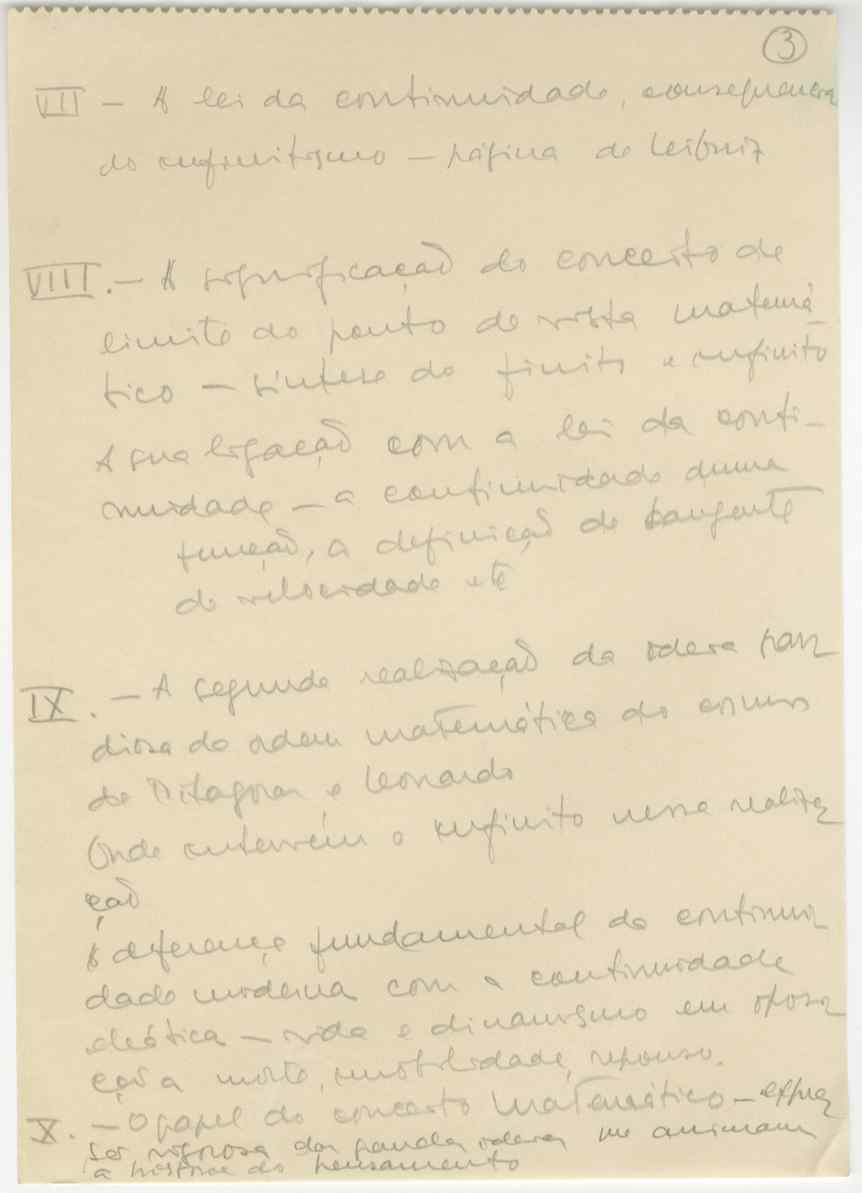 3
VII - A lei da continuidade, consequencia
do infinitismo - página de Leibniz
VIII. - A significação do conceito de
limite do ponto de vista matemá-
tico - síntese do finito e infinito
A sua ligação com a lei da conti-
nuidade - a continuidade duma
função, a definição de tangente
de velocidade etc
IX. - A segunda realização da ideia
da ordem matemática do cosmos
de Pitagoras e Leonardo
Onde intervém o infinito nessa realiza
ção
A diferença fundamental da continui
dade moderna com a continuidade
eleática - vida e dinamismo em oposi
ção a morte, imobilidade, repouso.
X. - O papel do conceito matemático - expres
são rigorosa das grandes ideias que animam
a história do pensamento